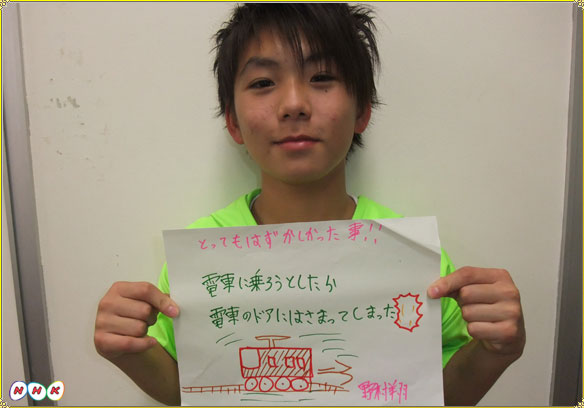 とってもはずかしかった事!!
電車に乗ろうとしたら
電車のドアにはさまってしまった
野村
NHK